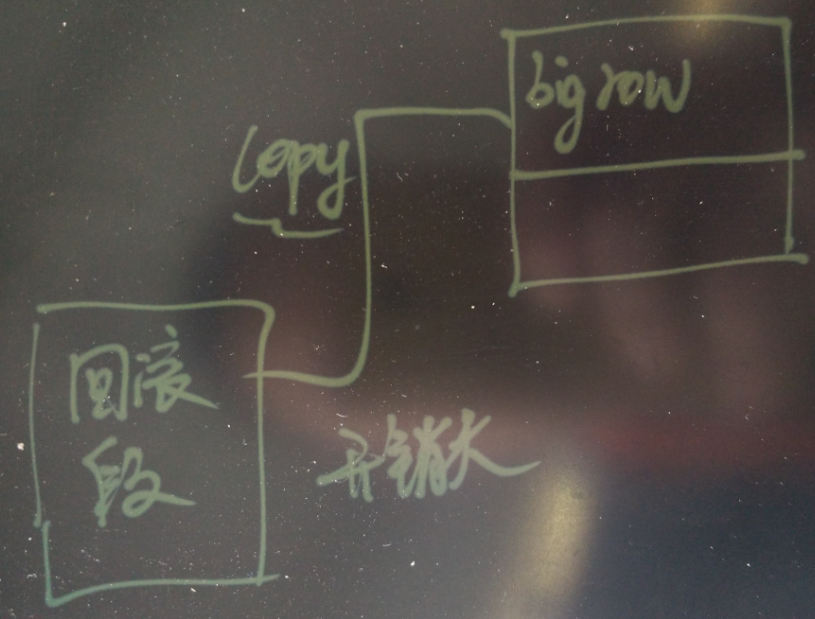 big row
copy
回滚
段
开销大